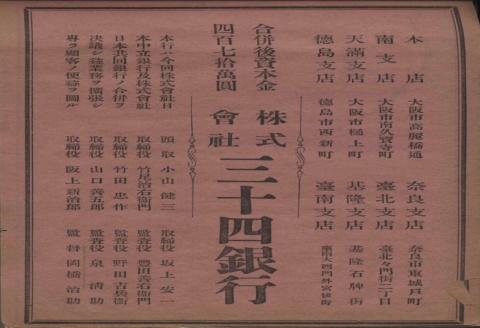 本店 大阪市高麗橋通
南支店 大阪市南久寳寺町
天滿支店 大阪市樋上町
德島支店 德島市西新町
奈良支店 奈良市東城戸町
臺北支店 臺北々門街二丁目
基隆支店 基隆石牌街
臺南支店
株式會社三十四銀行
合併後資本金
四百七拾萬圓
本行ハ今回株式會社日
本中立銀行及株式會社
日本共同銀行ノ合併ヲ
決議シ益業務ヲ擴張シ
專ラ顧客ノ便益ヲ圖ル
頭取 小山健三
取締役 竹尾治右衞門
取締役 竹田忠作
取締役 山口善五郎
取締役 阪上新治郎
取締役 坂上安一
監査役 豐田善右衞門
監査役 野田吉兵衞
監査役 泉清助
監督 岡橋治助